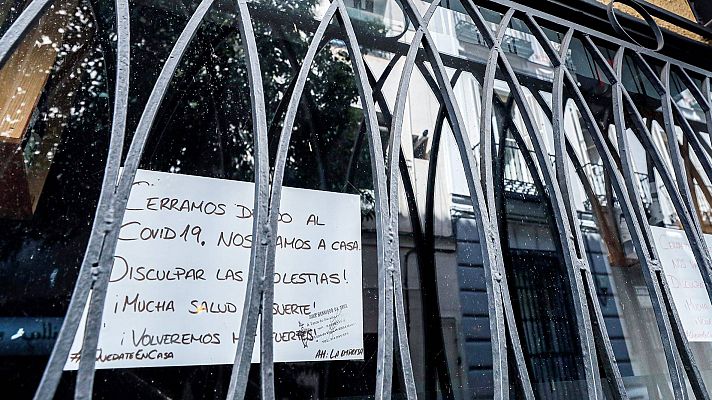 CERRAMOS D DO AL
COVID19. NOS AMOS A CASA.
DISCULPAR LAS OLESTIAS!
¡MUCHA SALUD SUERTE!
¡VOLVEREMOS M FUERTES!
#QUEDATEENCASA
AH: LA EMPRESA